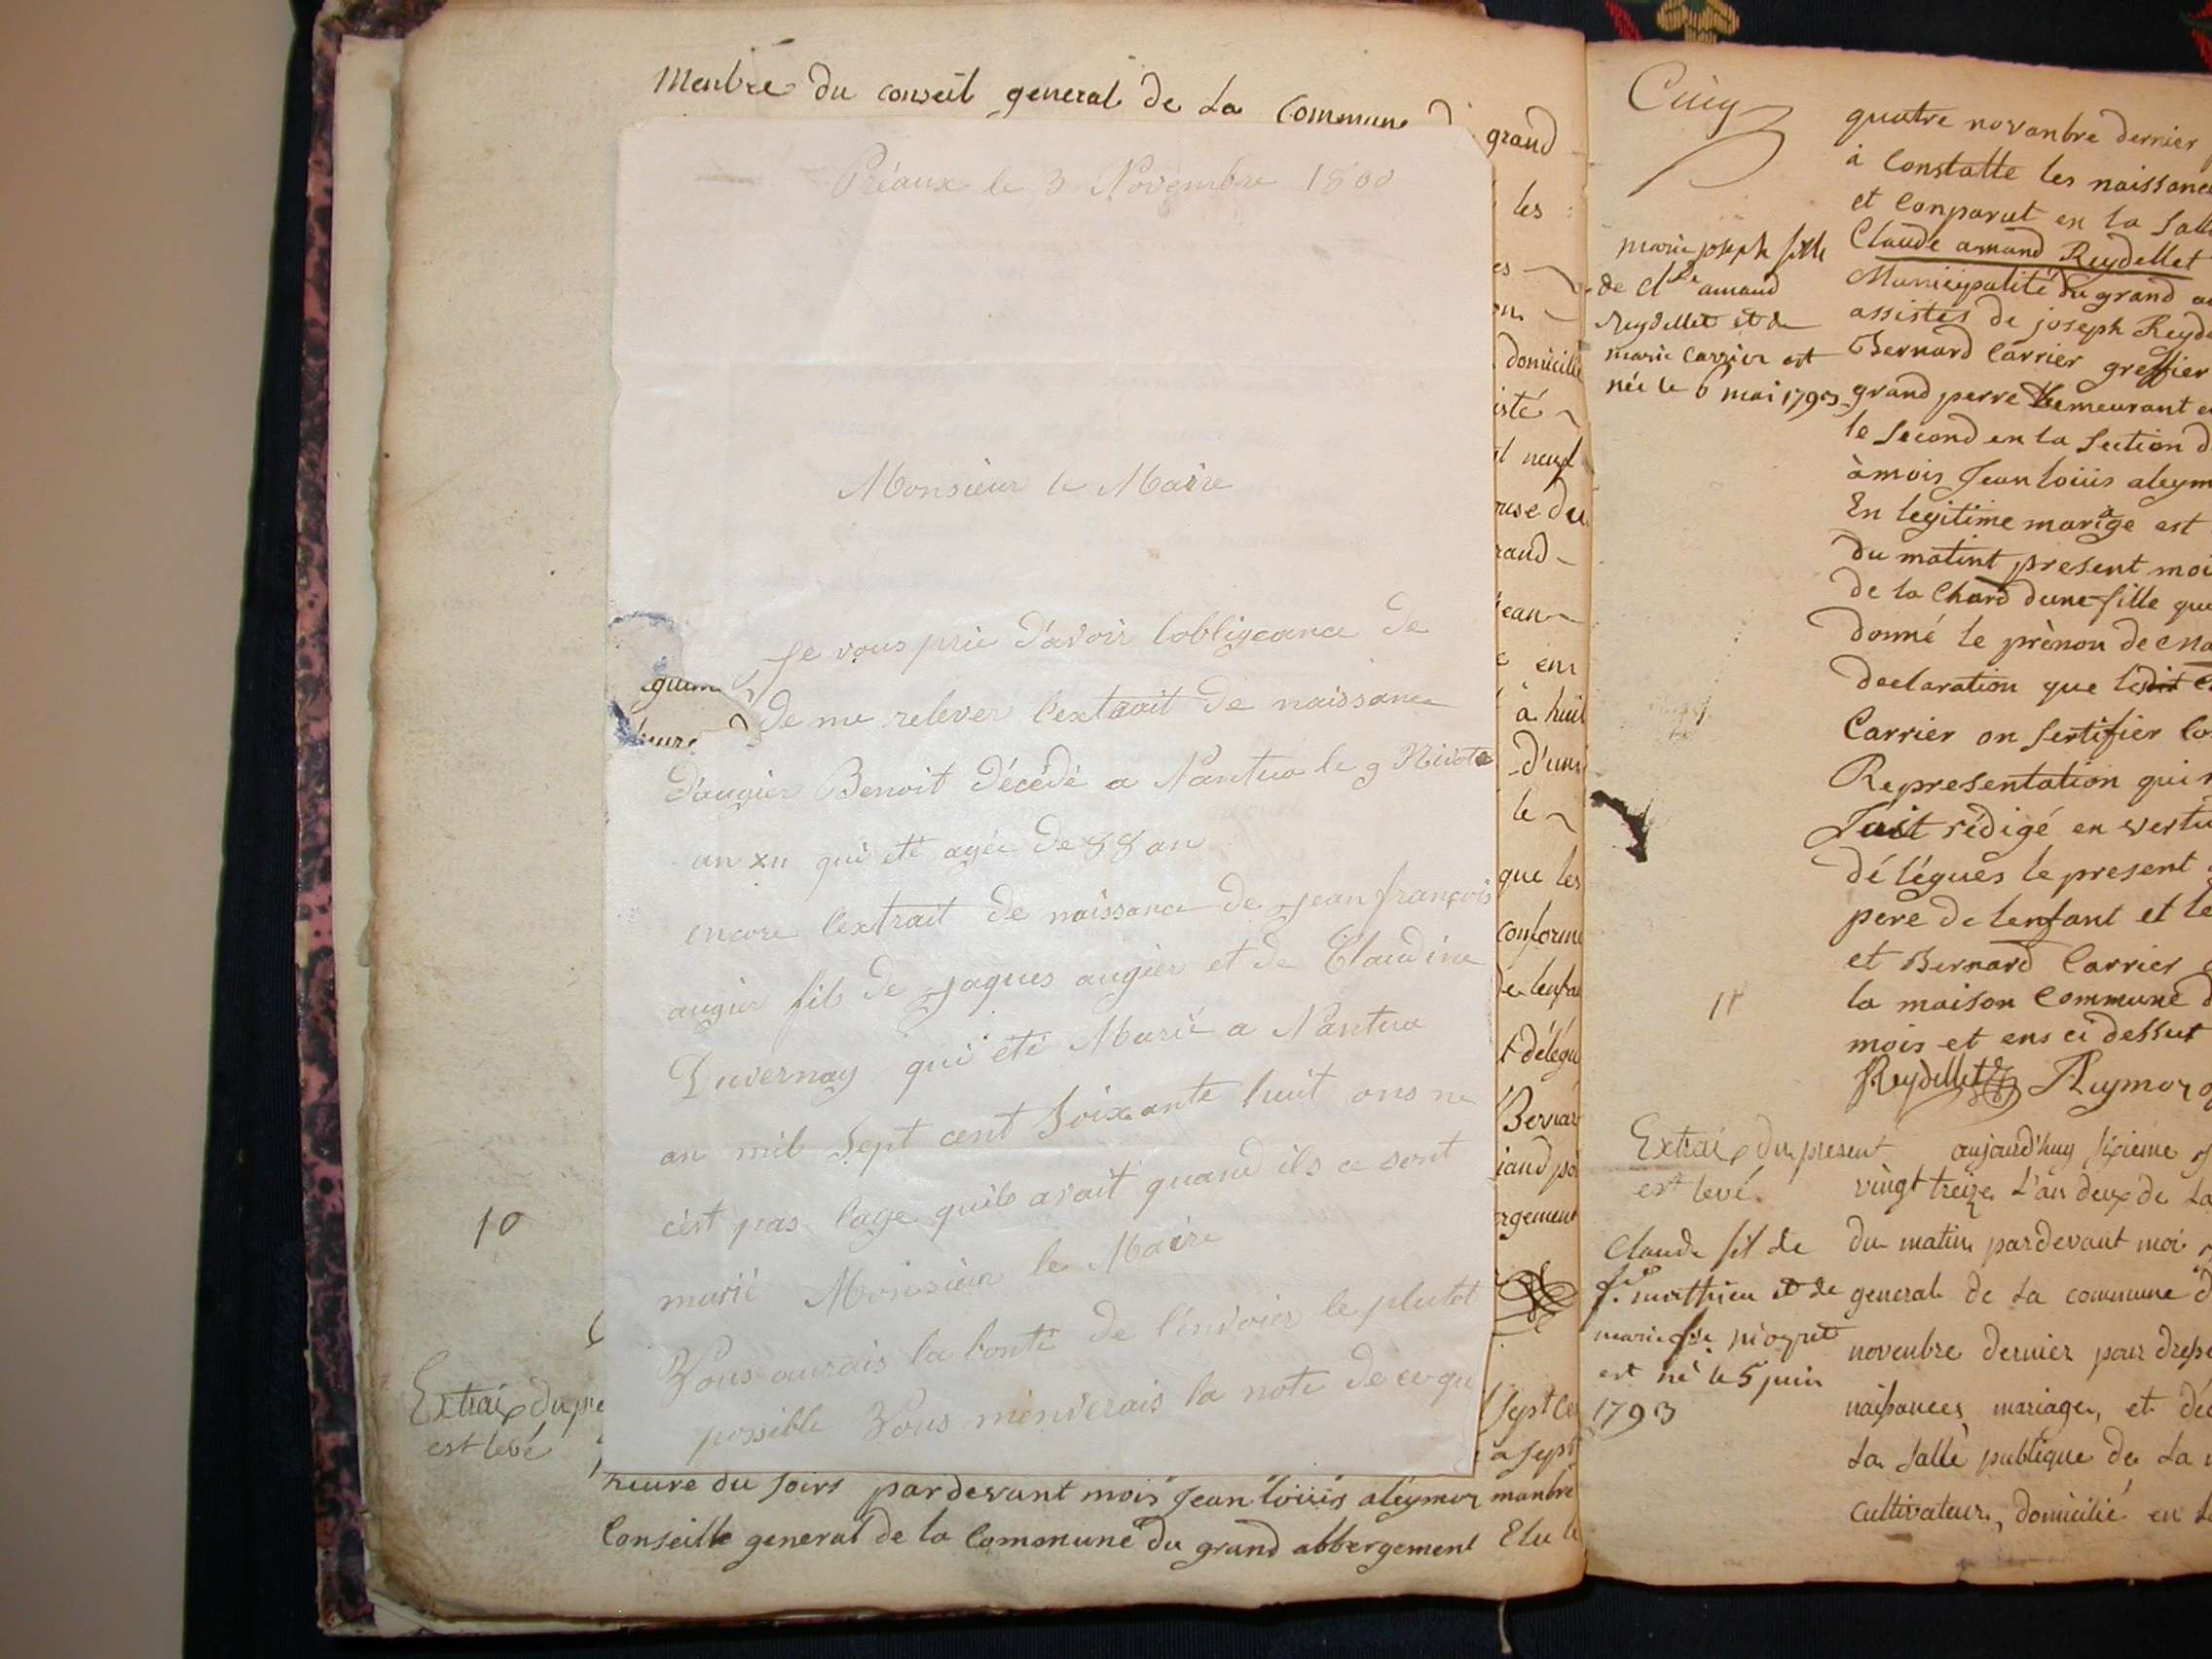 Menbre du conseil general de La Commune d grand
les
es
on
domicilié
isté
il neuf
ruse du
rand
jean
e en
à huit
d'uni
le
que les
conforme
de lenfa
t délégu
Bernar
iand pa
ergement
Préaux le 3 Novembre 1800
Monsieur le Maire
Je vous prie d'avoir lobligeance de
de me relever l'extrait de naissance
d'augier Benoit décédé a Nantua le 9 Nivote
an XII qui eté agée de 88 an
encore l'extrait de naissance de jean françois
augier fils de jaques augier et de Claudine
Duvernay qui eté Marié a Nantua
an mil Sept cent Soixante huit ons ne
cèst pas lage quils avait quand ils ce sont
marié Monsieur le Maire
Vous aurais la bonté de l'envoier le plutot
possible Vous m'enverais la note de ce qu
10
Extrai du pre
est levé
Sept ce
a sept
heure du soirs pardevant mois Jean loüis aleymoz manbre
Conseille general de la Commune du grand abbergement Elu le
Cuiq
marie joseph fille
de Cl.de amand
Reydellet et de
marie Carrier est
née le 6 mai 1793
quatre novanbre dernier
à Constatte les naissance
et Conparut en la Salle
Claude amand Reydellet
Municipalité du grand a
assistés de joseph Reyde
Bernard Carrier greffier
grand perre demeurant e
le Second en la Section d
àmois Jean loüis aleym
En legitime mariage est
du matint present moi
de la Chard dune fille que
donné le prènon de Ma
declaration que ledit C
Carrier on Sertifier Co
Representation qui m
fait rédigé en vertu
délégués le present
pere de lenfant et le
et Bernard Carrier
la maison Commune d
mois et ens ci dessut
Reydellet Aleymoz
11
Extrai du present
est levé.
Claude fil de
f. matthieu et de
marie fse piogret
est né le 5 juin
1793
aujourd'huy sixieme
vingt treize L'an deux de La
du matin pardevant moi
general de La commune d
novenbre dernier pour dresse
naissances mariages, et dé
La Salle publique de La
Cultivateur, domicilié en L